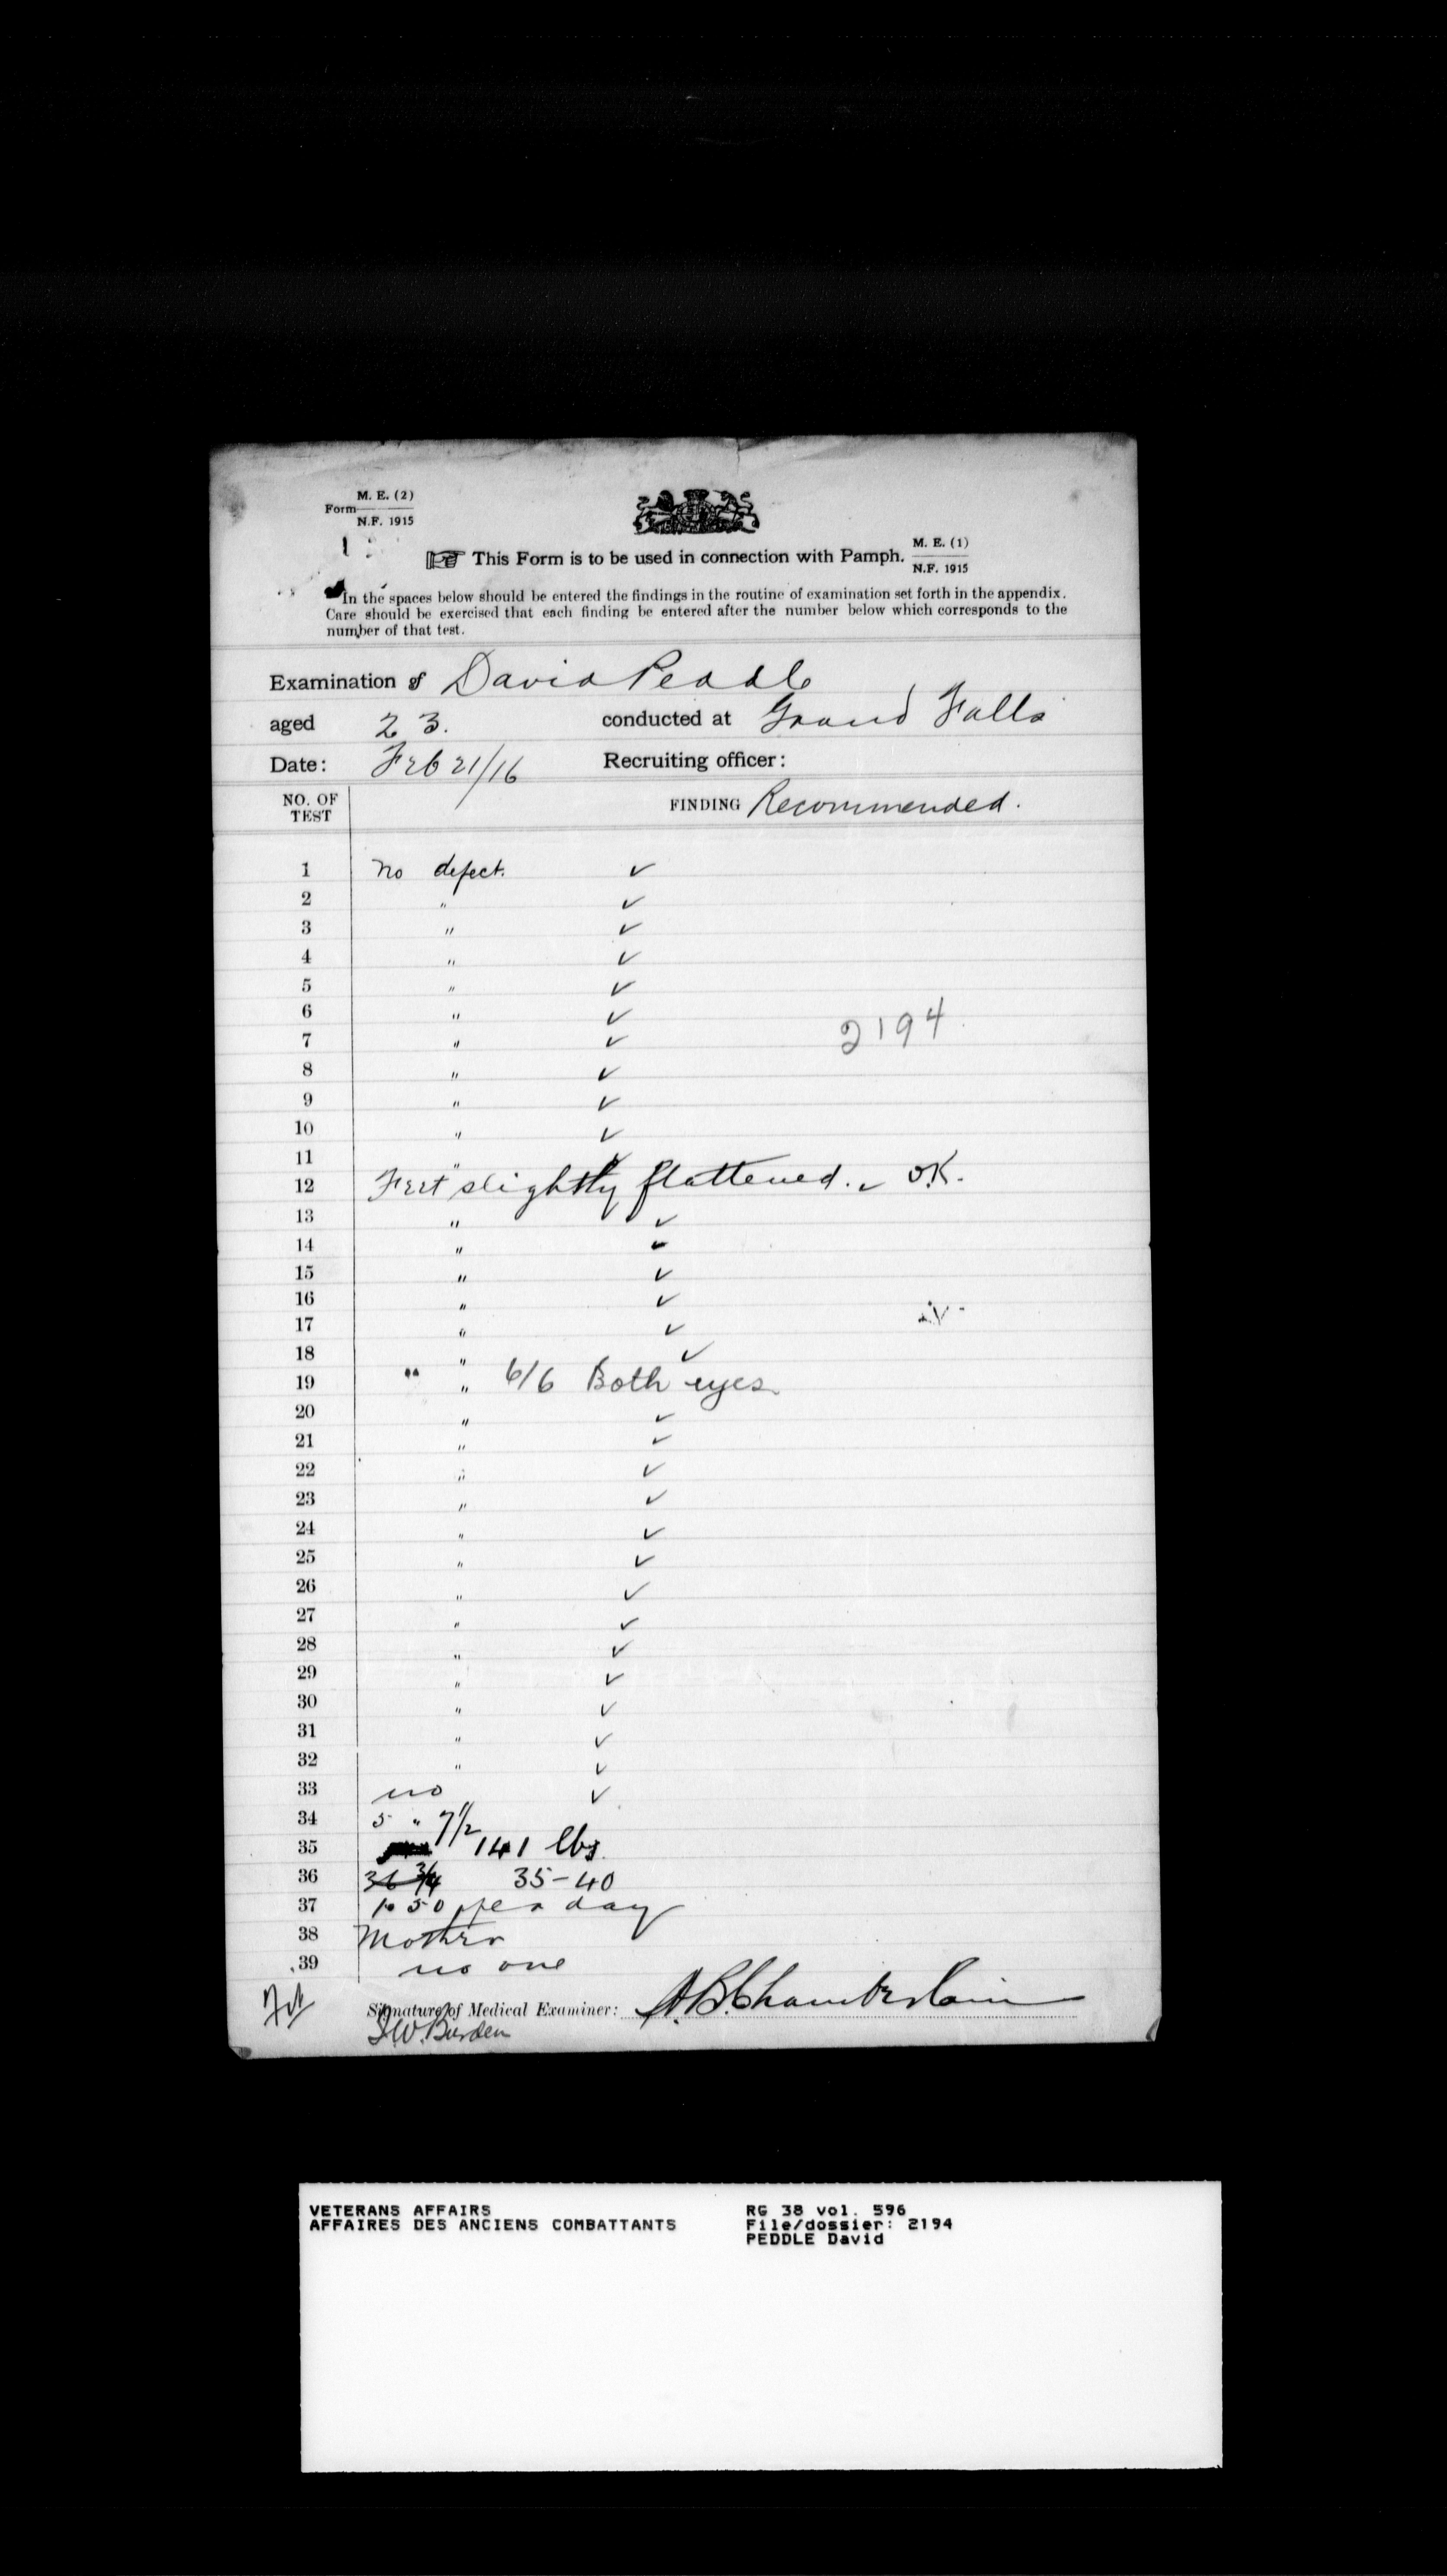 M. E. (2)
Form
N.F. 1915
This Form is to be used in connection with Pamph. M. E. (1)
N.F. 1915
In the spaces below should be entered the findings in the routine of examination set forth in the appendix.
Care should be exercised that each finding be entered after the number below which corresponds to the
number of that test.
Examination of David Peddle
aged 23. conducted at Grand Falls
Date: Feb 21/16 Recruiting officer:
NO. OF TEST FINDING Recommended.
1 No defect. ✓
2 " ✓
3 " ✓
4 " ✓
5 " ✓
6 " ✓
2194
7 " ✓
8 " ✓
9 " ✓
10 " ✓
11 " ✓
12 Feet slightly flattened. ✓ O.K.
13 " ✓
14 " ✓
15 " ✓
16 " ✓
17 " ✓
18 " ✓
19 " " 6/6 Both eyes.
20 " ✓
21 " ✓
22 " ✓
23 " ✓
24 " ✓
25 " ✓
26 " ✓
27 " ✓
28 " ✓
29 " ✓
30 " ✓
31 " ✓
32 " ✓
33 no ✓
34 5 " 7 1/2
35 141 lbs.
36 36 3/4 35-40
37 1.50 per day
38 Mother
39 no one
Fit Signature of Medical Examiner: A.B. Chamberlain
S.W. Burden
VETERANS AFFAIRS RG 38 vol. 596
AFFAIRES DES ANCIENS COMBATTANTS File/dossier: 2194
PEDDLE David